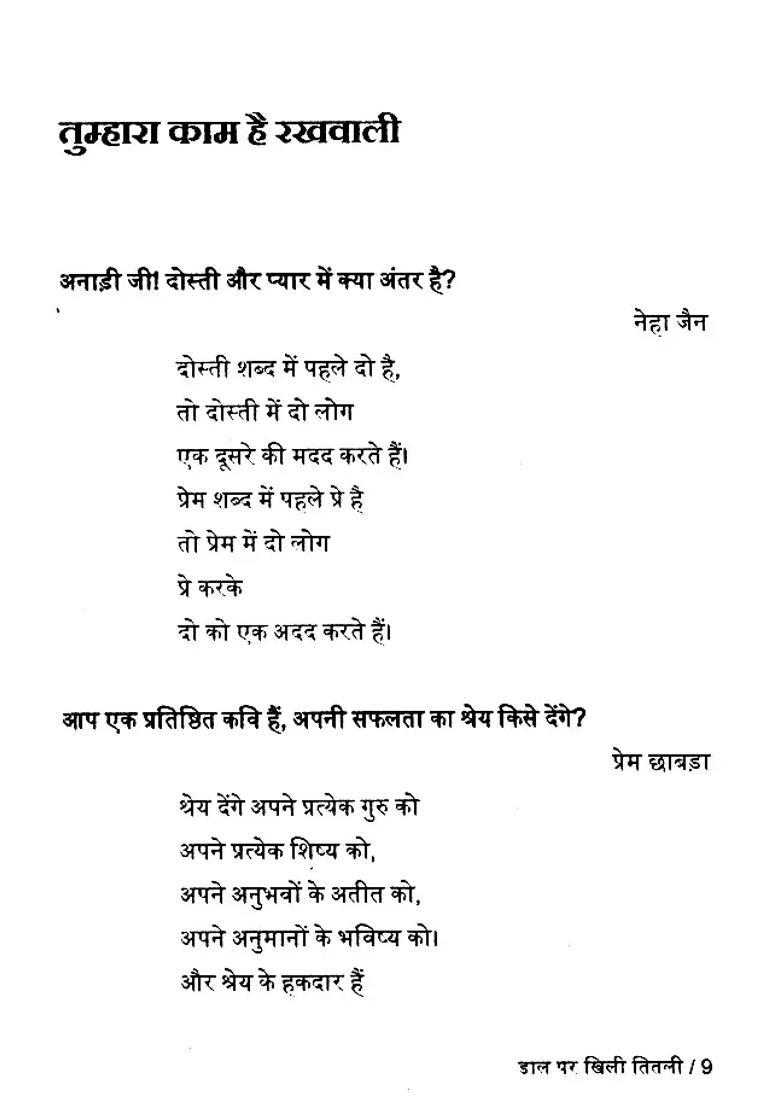 तुम्हारा काम है रखवाली
अनाड़ी जी! दोस्ती और प्यार में क्या अंतर है?
नेहा जैन
दोस्ती शब्द में पहले दो है,
तो दोस्ती में दो लोग
एक दूसरे की मदद करते हैं।
प्रेम शब्द में पहले प्रे है
तो प्रेम में दो लोग
प्रे करके
दो को एक अदद करते हैं।
आप एक प्रतिष्ठित कवि हैं, अपनी सफलता का श्रेय किसे देंगे?
प्रेम छाबड़ा
श्रेय देंगे अपने प्रत्येक गुरु को
अपने प्रत्येक शिष्य को,
अपने अनुभवों के अतीत को,
अपने अनुमानों के भविष्य को।
और श्रेय के हकदार हैं
डाल पर खिली तितली / 9